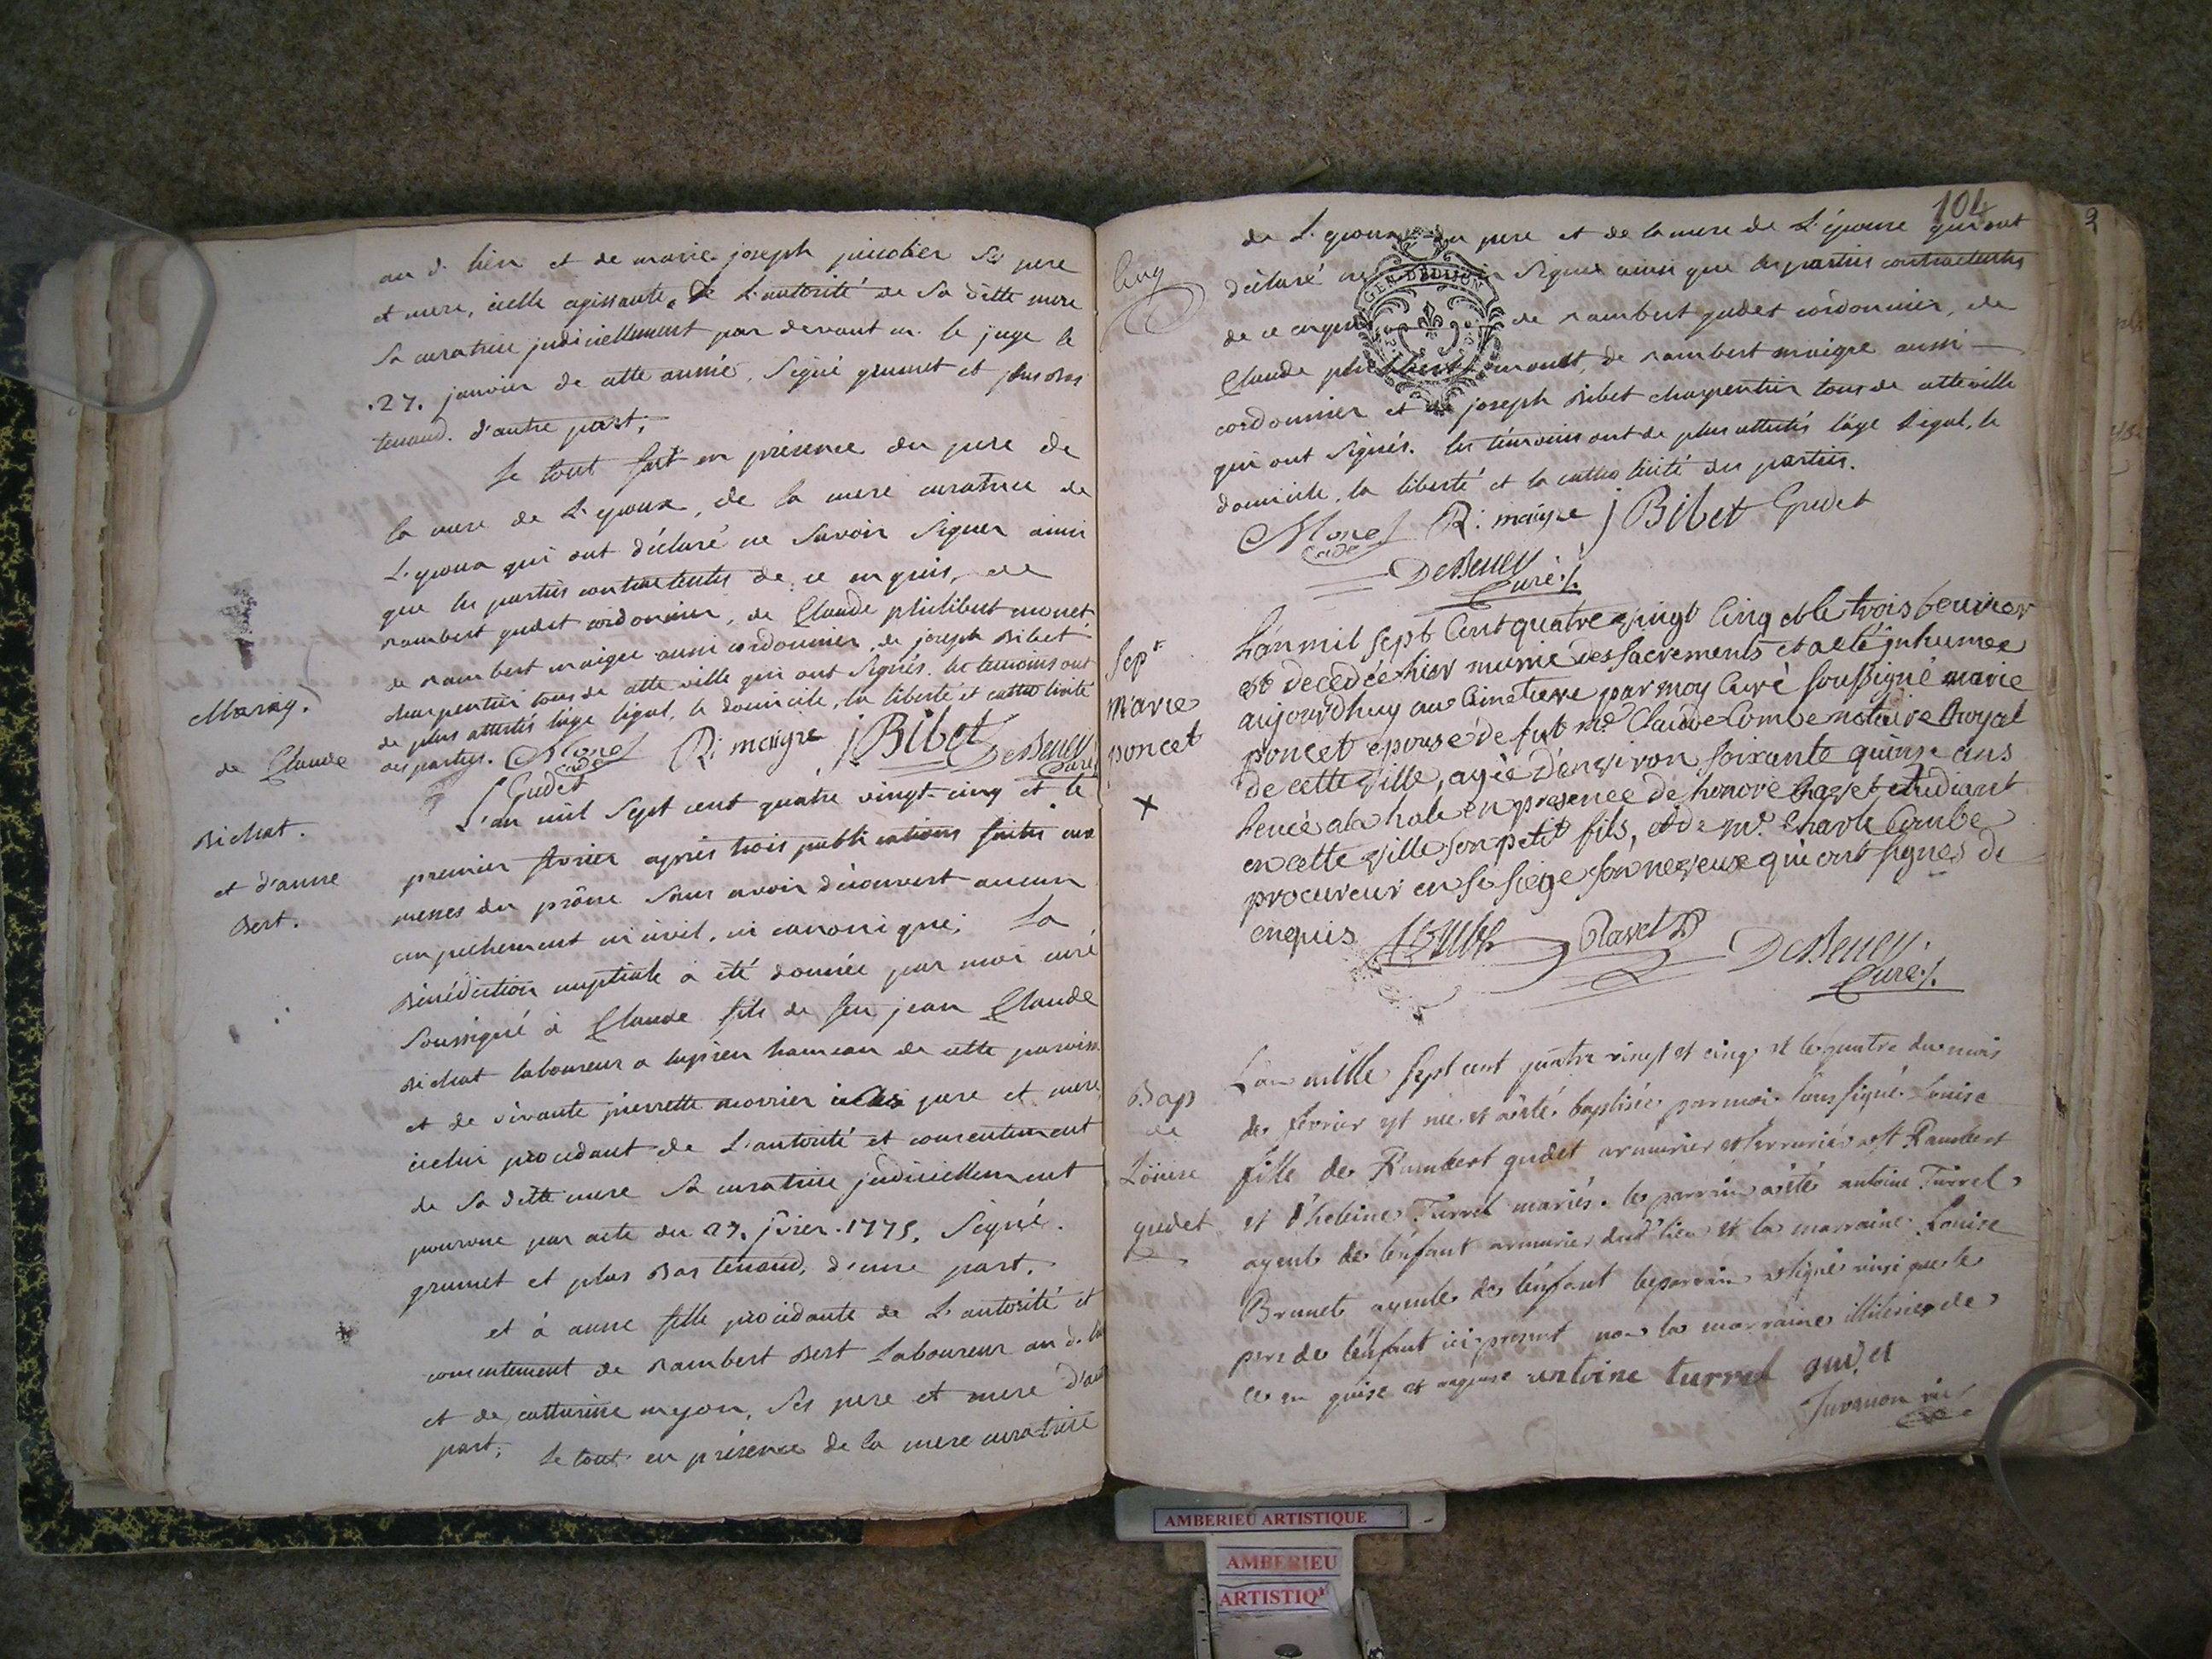 au d. lieu et de marie joseph juicolier ses pere
et mere, icelle agissante de L'autorité de Sa ditte mere
Sa curatrice judiciellement par devant m. le juge le
.27. janvier de cette année. Signé grumet et plus bas
tenand. d'autre part;
Le tout fait en présence du pere de
la mere de L'epoux, de la mere curatrice de
L'epoux qui ont déclaré ne Savoir Signer ainsi
que les parties contractentes de ce enquis, de
rambert gudet cordonnier, de Claude philibert monet
de rambert maigre aussi cordonnier, de joseph Bibet
charpentier tous de cette ville qui ont Signés. les temoins ont
de plus attestés l'age légal, le domicile, la liberté et catholicité
des parties. Monet R: maigre j Bibet DeBeney
cadet Curé
Gudet
Mariag.
de Claude
Bichat.
et d'anne
Bert.
L'an mil Sept cent quatre vingt-cinq et le
premier fevrier après trois publications faites aux
messes du prône Sans avoir découvert aucun
empechement ni civil, ni canonique; La
Bénédiction nuptiale a été donnée par moi curé
Soussigné à Claude fils de feu jean Claude
Bichat laboureur a hameau de cette paroisse
et de vivante pierrette morrier ses pere et mere,
icelui procedant de L'autorité et consentement
de Sa ditte mere Sa curatrice judiciellement
pourvue par acte du 27. jvier. 1775. Signé.
grumet et plus Bas tenand, d'une part.
et à anne fille procédante de L'autorité et
consentement de rambert Bert Laboureur au d. lieu
et de catherine mejon, Ses pere et mere d'autre
part; Le tout en présence de la mere curatrice
104
2
Cinq
de L'epoux du pere et de la mere de L'épouse qui ont
déclaré ne Signer ainsi que les parties contractentes
de ce enquis de rambert gudet cordonnier, de
Claude philibert monet, de rambert maigre aussi
cordonnier et de joseph Bibet charpentier tous de cette ville
qui ont Signés. les témoins ont de plus attestés l'age légal, le
domicile, la liberté et la catholicité des parties.
GEN. DE DIJON
Monet R: maigre j Bibet Gudet
cadet
DeBeney
Curé./.
Sepr
marie
poncet
X
L'an mil sept Cent quatre vingt Cinq et le trois fevrier
est decedée hier munie des Sacrements et a eté inhumee
aujourdhuy au Cimetiere par moy Curé Soussigné marie
poncet epouse de fut me. Claude Combe notaire Royal
de cette ville, agée d'environ Soixante quinze ans
en presence de honoré Ravet etudiant
en cette ville son petit fils, et de me. Charle Combe
procureur en Ce siege son neveux qui ont signes de
enquis Combe Ravet DeBeney.
Curé./.
Bap
de
Loüise
gudet
L'an mille sept cent quatre vingt et cinq et le quatre du mois
de fevrier est née et a été baptisée par moi soussigné Louise
fille de Rambert gudet armurier et serrurier a St Rambert
et d'heleine Turrel mariés. le parrain a été antoine Turrel
ayeul de l'enfant armurier dud.t lieu et la marraine Louise
Brunet ayeule de l'enfant le parrain a signé ainsi que le
pere de l'enfant ici present non la marraine illiterée de
ce en quise et requise antoine turrel gudet
Juvanon vic
AMBERIEU ARTISTIQUE
AMBERIEU
ARTISTIQ